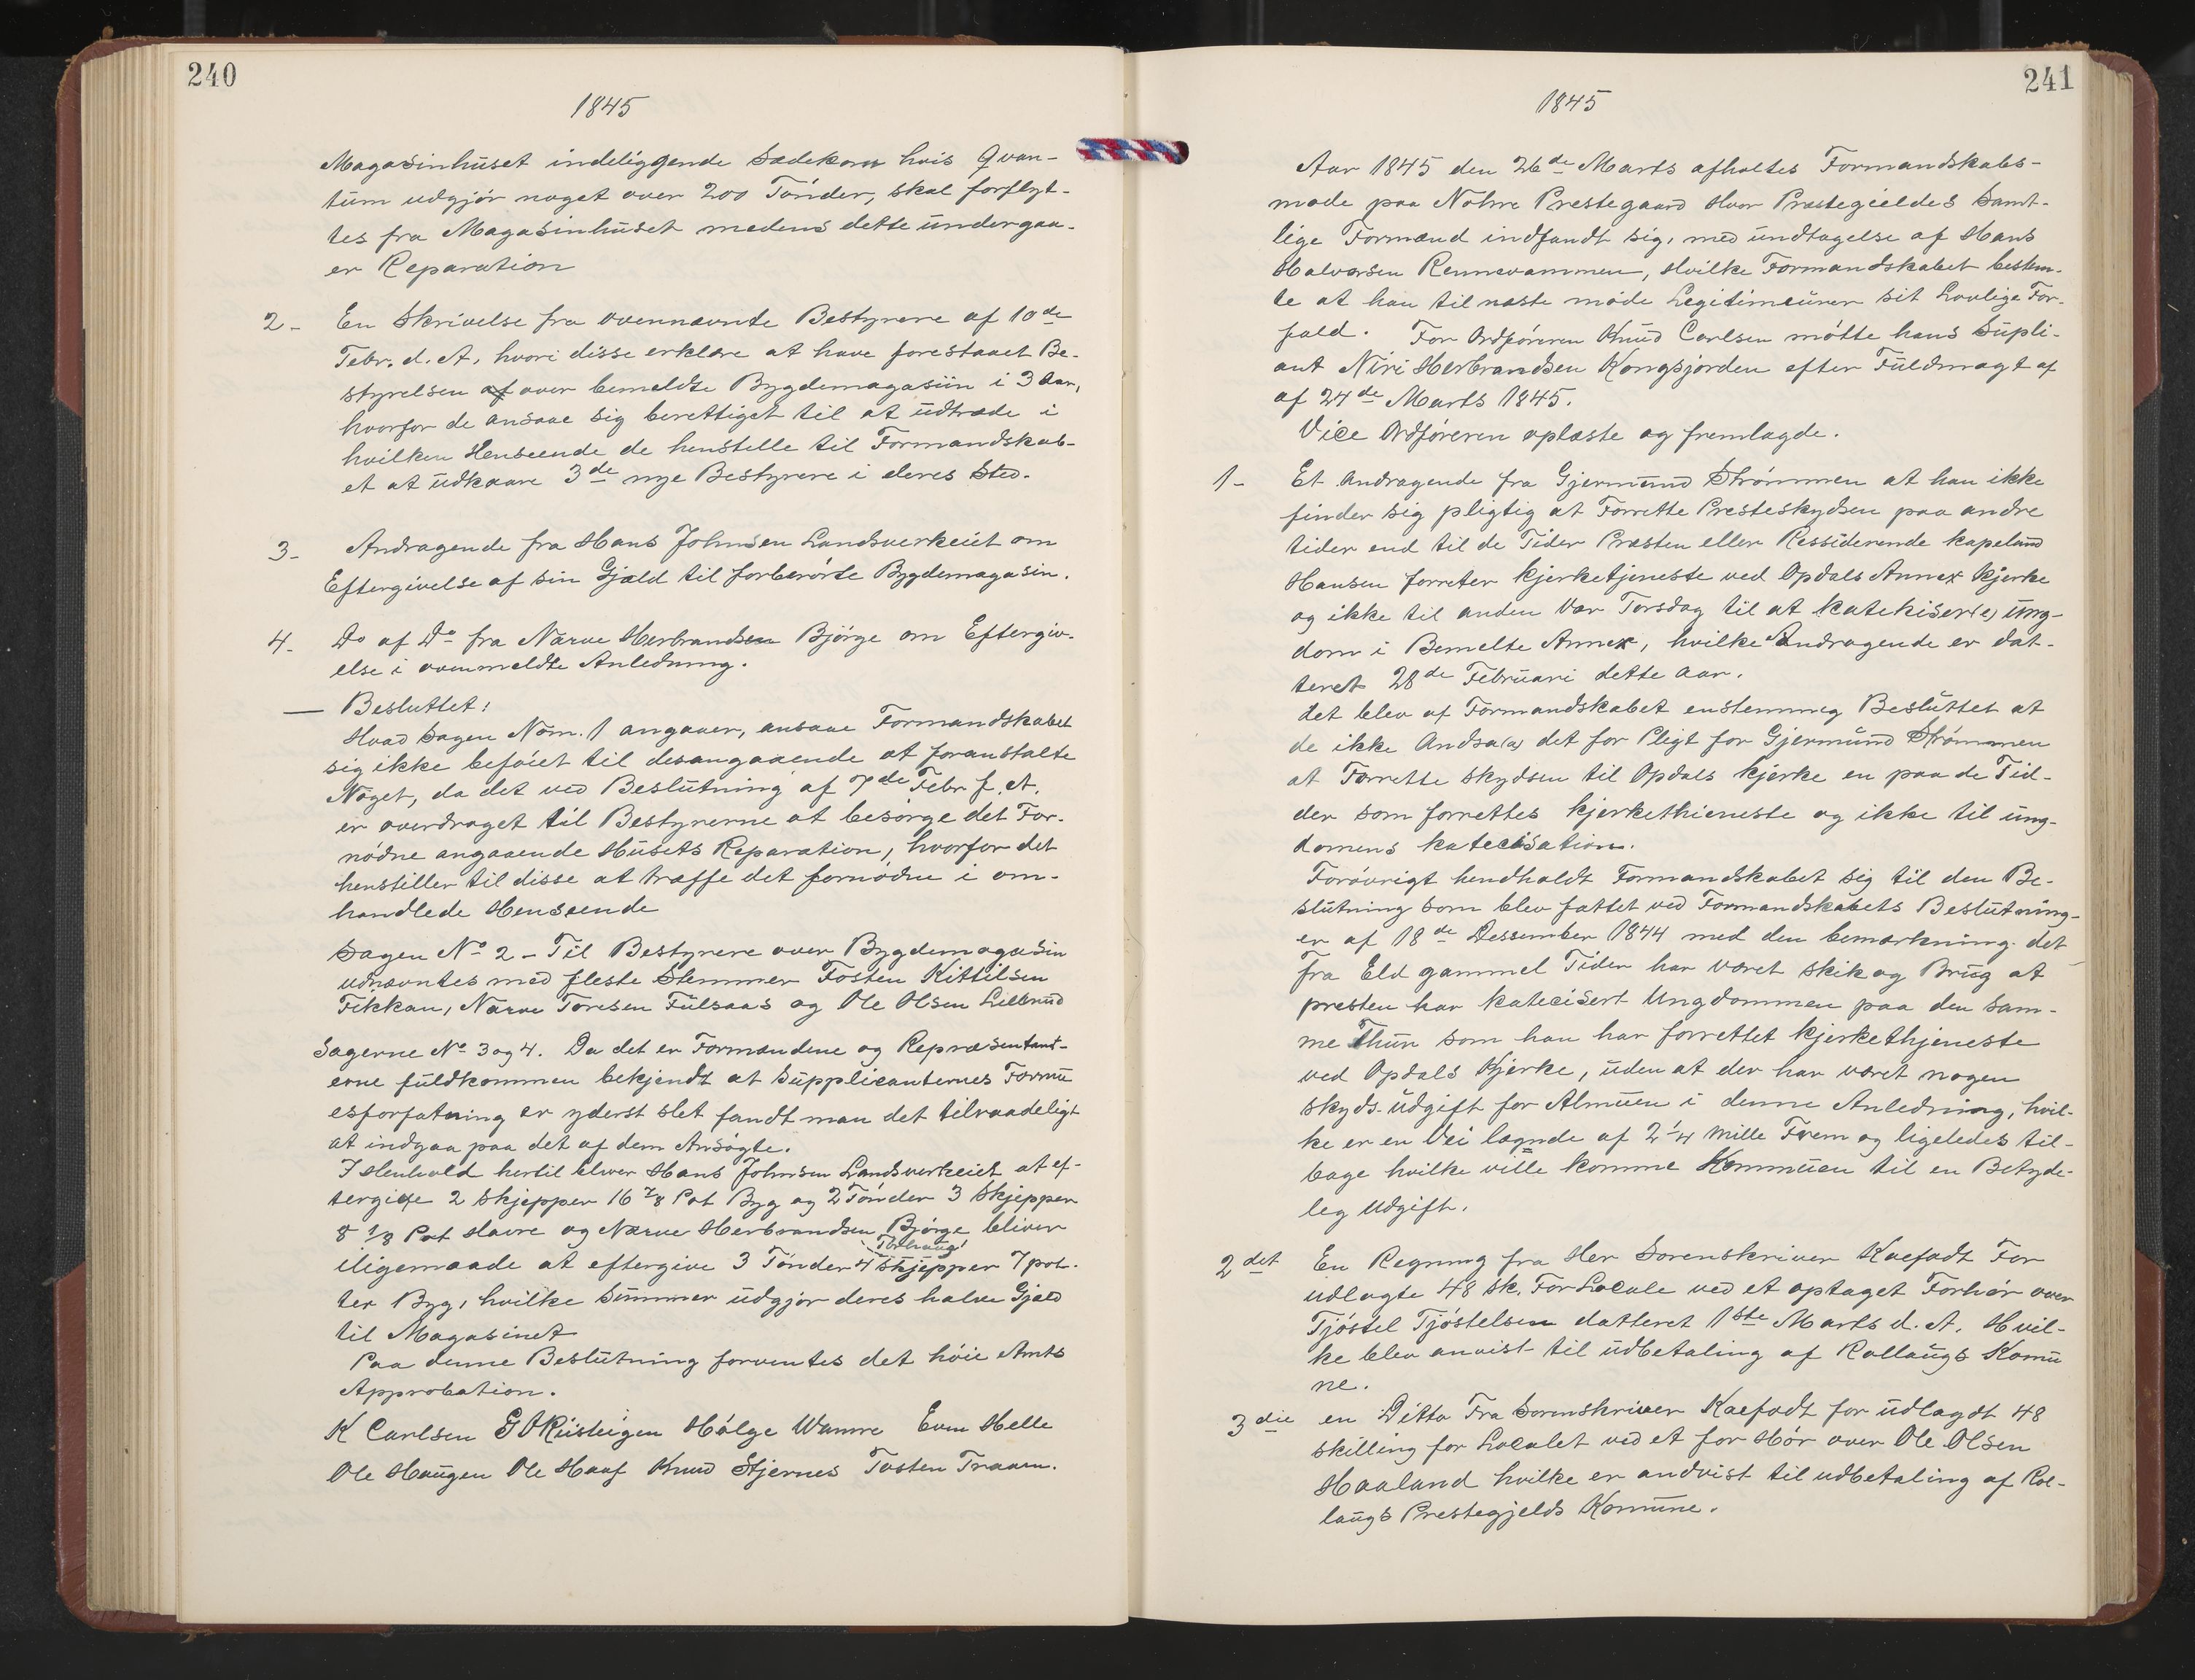 240
1845
Magasinhuset indeliggende Sædekorn hvis Qvan-
tum udgjör noget over 200 Tönder, skal forflyt-
tes fra Magasinhuset medens dette undergaa-
er Reparation
2- En Skrivelse fra ovennævnte Bestyrere af 10de
Febr. d. A, hvori disse erklære at have forestaaet Be-
styrelsen af over bemeldte Bygdemagasiin i 3 Aar,
hvorfor de ansaae sig berettiget til at udtræde i
hvilken Henseende de henstelle til Formandskab-
et at udkaare 3de nye Bestyrere i deres Sted.
3- Andragende fra Hans Johnsen Landsverkeiet om
Eftergivelse af sin Gjæld til forberörte Bygdemagasin.
4- Do af Do fra Narve Herbrandsen Björge om Eftergiv-
else i ovenmeldte Anledning.
— Besluttet:
Hvad Sagen Nom. 1 angaaer, ansaae Formandskabet
sig ikke beföiet til desangaaende at foranstalte
Noget, da det ved Beslutning af 7de Febr f. A.
er overdraget til Bestyrerne at besörge det For-
nödne angaaende Husets Reparation, hvorfor det
henstiller til disse at træffe det fornödne i om-
handlede Henseende
Sagen No 2 - Til Bestyrere over Bygdemagasin
udnævntes med fleste Stemmer Tosten Kittilsen
Fikkan, Narve Toresen Fulsaas og Ole Olsen Lillerud
Sagerne No 3 og 4. Da det er Formændene og Repræsentant-
erne fuldkommen bekjendt at Supplicanternes Formu
esforfatning er yderst slet fandt man det tilraadeligt
at indgaa paa det af dem Ansögte.
I Henhold hertil bliver Hans Johnsen Landsverkeiet at ef-
tergive 2 Skjepper 16 7/8 Pot Byg og 2 Tönder 3 Skjepper
8 1/8 Pot Havre og Narve Herbrandsen Björge bliver
iligemaade at eftergive 3 Tönder 4 Skjepper 7 pot-
ter Byg, hvilke Summer udgjör deres halve Gjæld
til Magasinet
Paa denne Beslutning forventes det höie Amts
Approbation.
K Carlsen G O Ruisteigen Hölge Wamre Even Helle
Ole Haugen Ole Haaf Knud Stjernes Tosten Traaen.
241
1845
Aar 1845 den 26de Marts afholtes Formandskabs-
möde paa Nöhre Prestegaard Hvor Præstegieldes Samt-
lige Formænd indfandt sig, med undtagelse af Hans
Halvorsen Rennevammen, Hvilke Formandskabet bestem-
te at han til næste möde Legitimeurer sit Lovlige For-
fald. For Ordföreren Knud Carlsen mötte hans Supli-
ant Niri Herbrandsen Kongsjorden efter Fuldmagt af
af 24de Marts 1845.
Vice Ordföreren oplæste og fremlagde.
1- Et Andragende fra Gjermund Strömmen at han ikke
finder sig pligtig at Forrette Presteskydsen paa andre
tider end til de Tider Præsten eller Ressiderende kapeland
Hansen forreter kjerketjeneste ved Opdals Annex Kjerke
og ikke til anden Vær Torsdag til at katekiser(e) ung-
dom i Bemelte Annex, hvilke Andragende er dat-
teret 28de Februari dette aar.
det blev af Formandskabet enstemmig Besluttet at
de ikke Andsa(a) det for Pligt for Gjermund Strömmen
at Forrette Skydsen til Opdals kjerke en paa de Tid-
der som forrettes kjerkethieneste og ikke til ung-
domens katecisation.
Foróvrigt hendholdt Formandskabet sig til den Be-
slutning som blev fattet ved Formandskabets Beslutning-
er af 18de Dessember 1844 med den bemærkning det
fra Eld gammel Tider har været skik og Brug at
presten har katecisert Ungdommen paa den sam-
me Thur som han har forrettet kjerkethjeneste
ved Opdals Kjerke, uden at der har været nogen
skyds-udgift for Almuen i denne Anledning, hvil-
ke er en Vei lægnde af 2 1/4 mille Frem og ligeledes til-
bage hvilke ville komme Kommuen til en Betyde-
leg Udgift.
2det En Regning fra Her Sorenskriver Kaefodt For
udlagte 48 sk. For Locale ved et optaget Forhör over
Tjöstel Tjöstelsen datteret 1ste Marts d. A. Hvil-
ke blev anvist til udbetaling af Rollaugs Komu
ne.
3die en Ditto Fra Sorenskriver Kaefodt for udlagdt 48
skilling for Localet ved et for Hör over Ole Olsen
Haaland hvilke er andvist til udbetaling af Rol-
laugs Prestegjelds Komune.